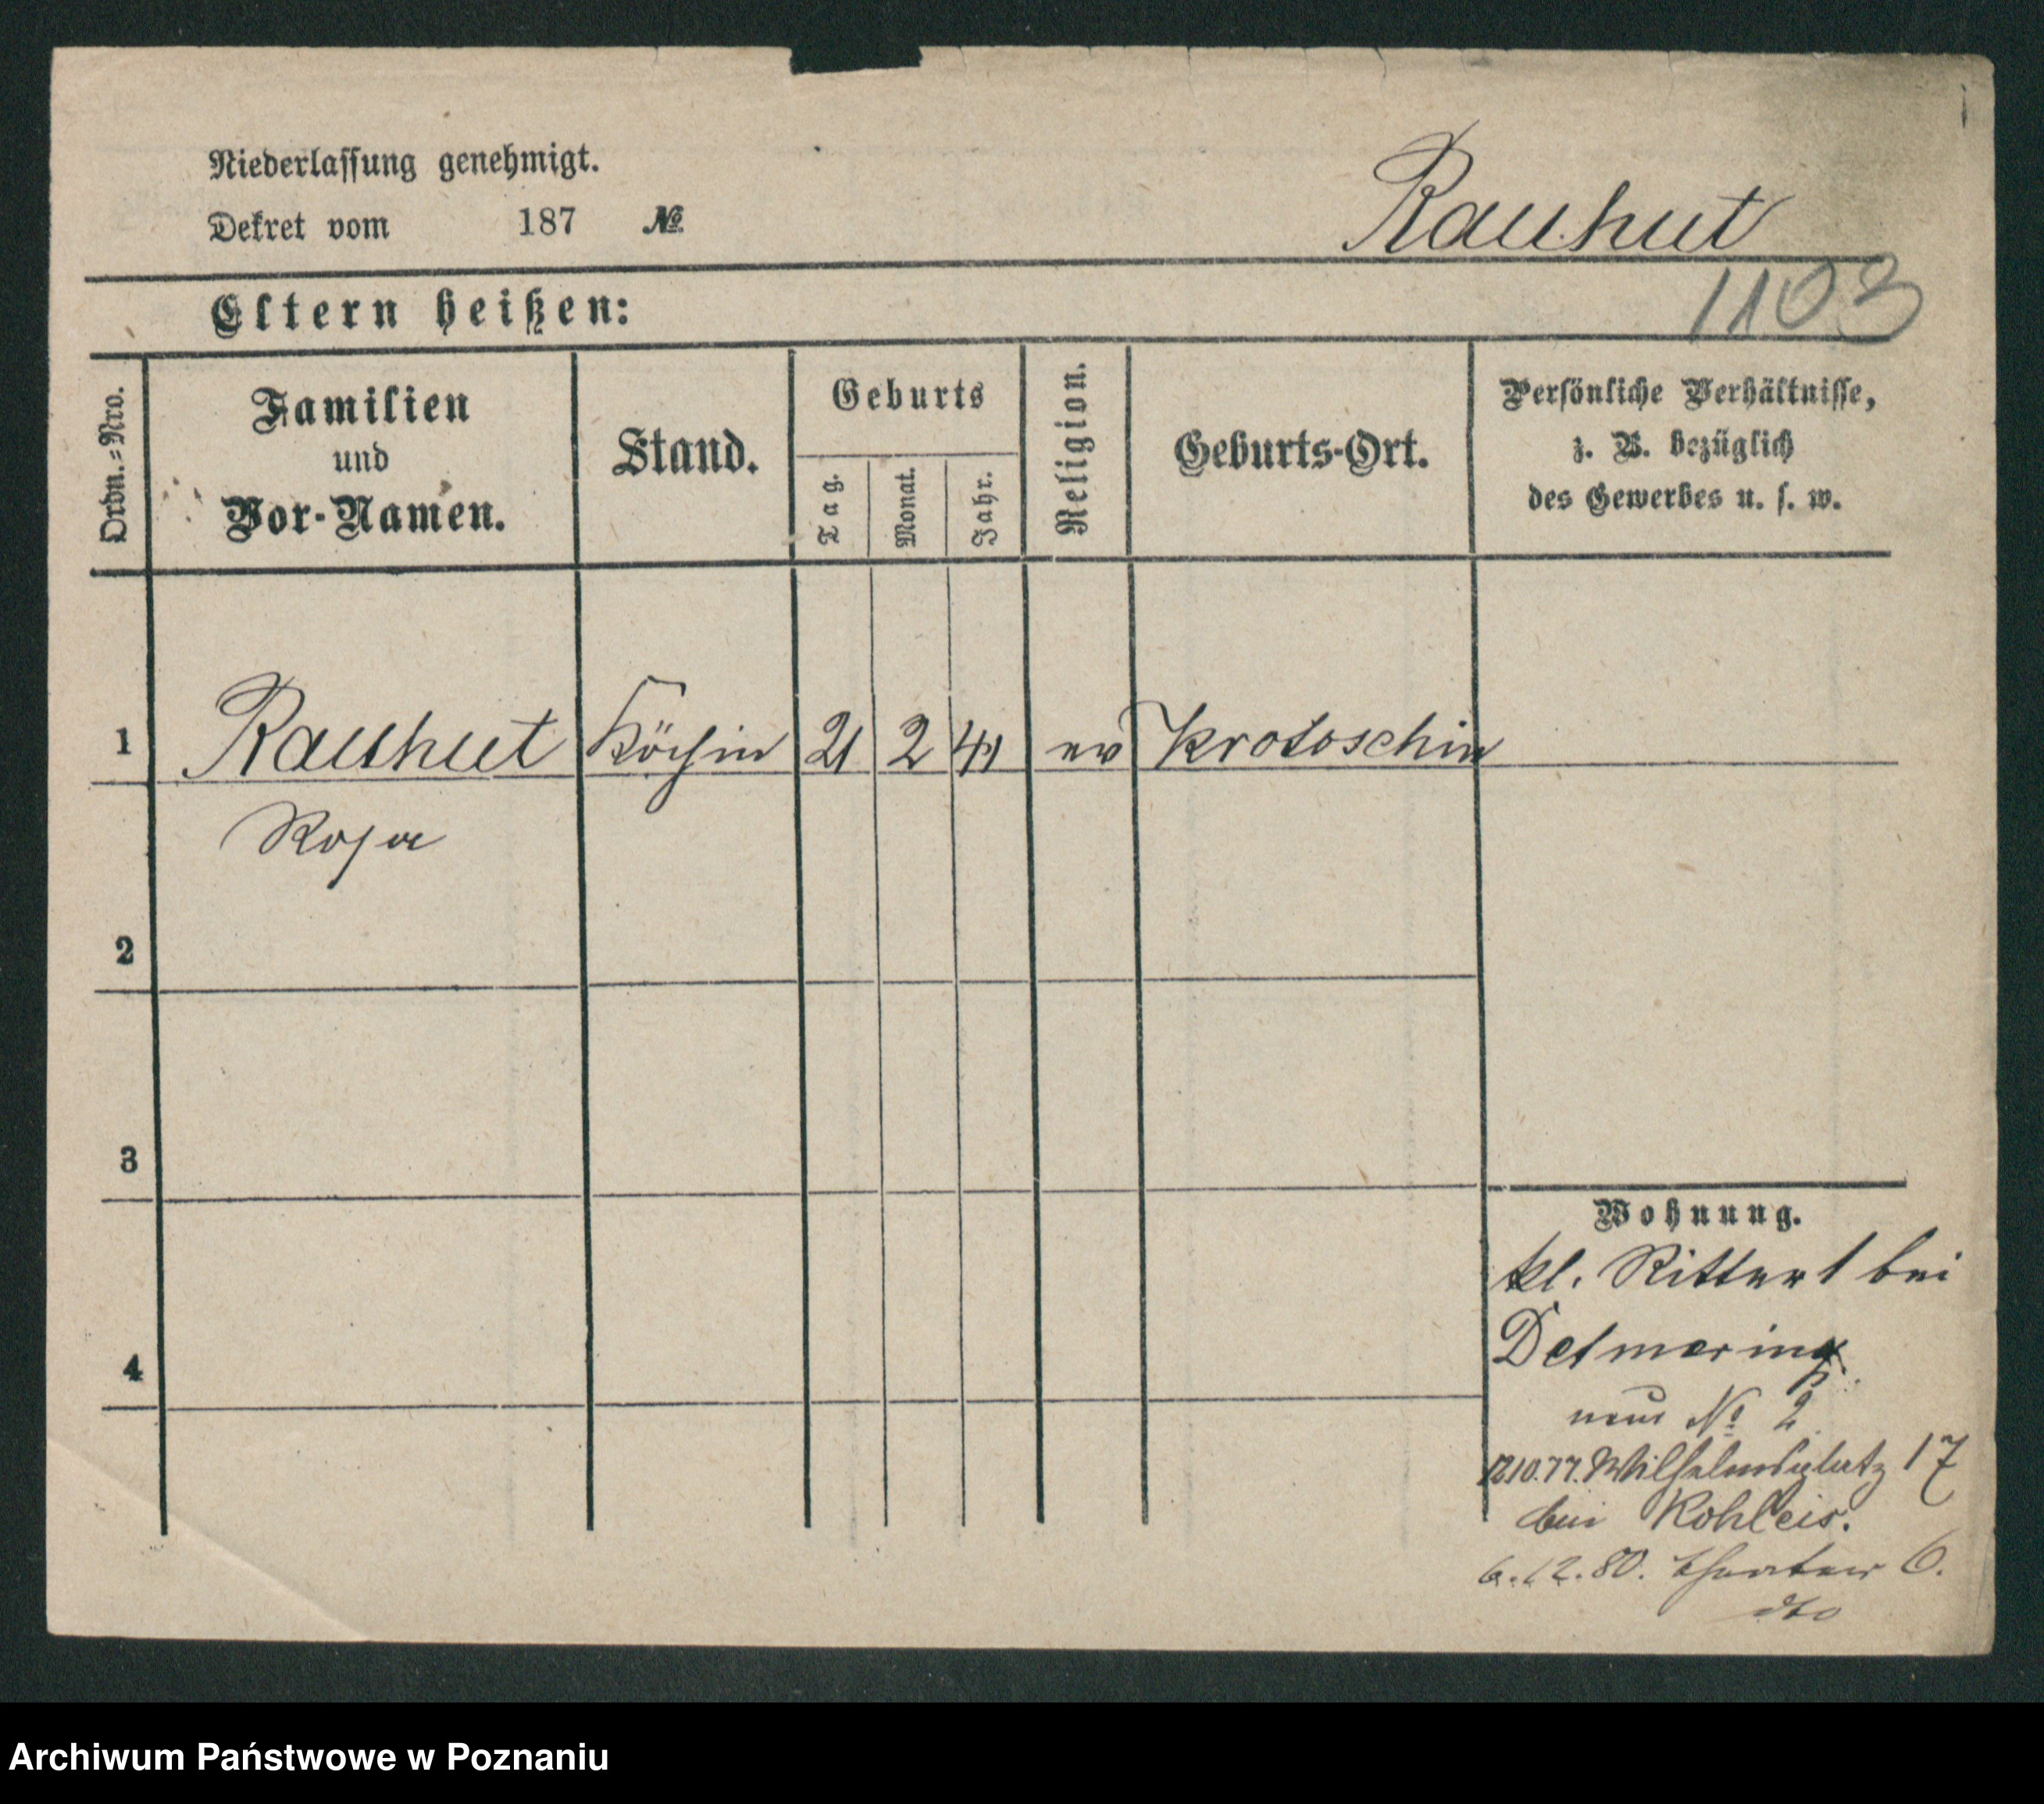 Niederlassung genehmigt.
Dekret vom 187 №
Rauhut
1103
Eltern heißen:
Ordn.=Nro.
Familien
und
Vor-Namen.
Stand.
Geburts
Tag.
Monat.
Jahr.
Religion.
Geburts-Ort.
Persönliche Verhältnisse,
z. B. bezüglich
des Gewerbes u. s. w.
1 Rauhut Köchin 21 2 41 ev Krotoschin
Rosa
2
3
4
Wohnung.
kl. Ritter 1 bei
Detmering
neue № 2
10.77. Wilhelmsplatz 17
bei Kohleis.
6.12.80. Theater 6.
dto
Archiwum Państwowe w Poznaniu